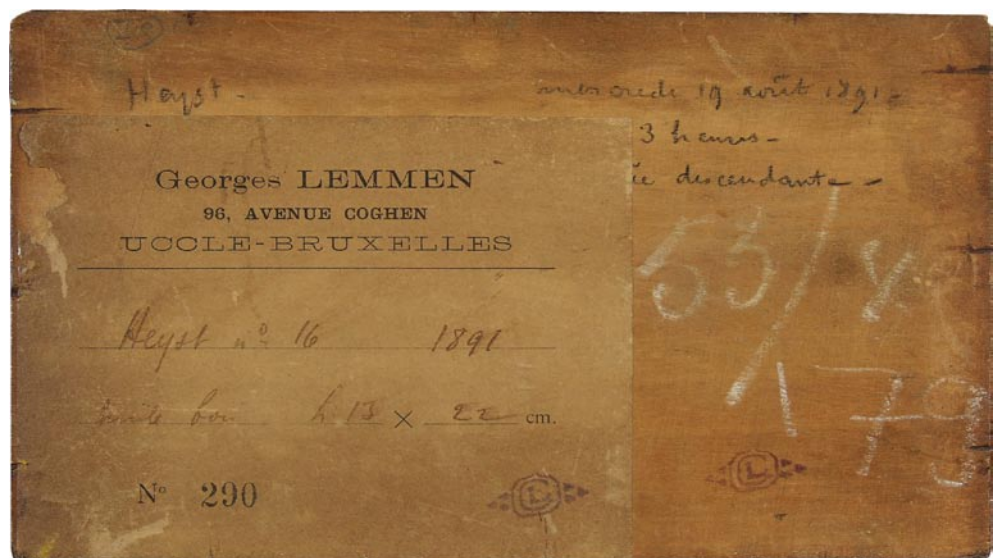 Heyst - mercredi 19 août 1891 -
3 heures -
ée descendante -
Georges LEMMEN
96, AVENUE COGHEN
UCCLE-BRUXELLES
Heyst nº 16 1891
huile bois h. 13 × 22 cm.
Nº 290
53/
179
L
L